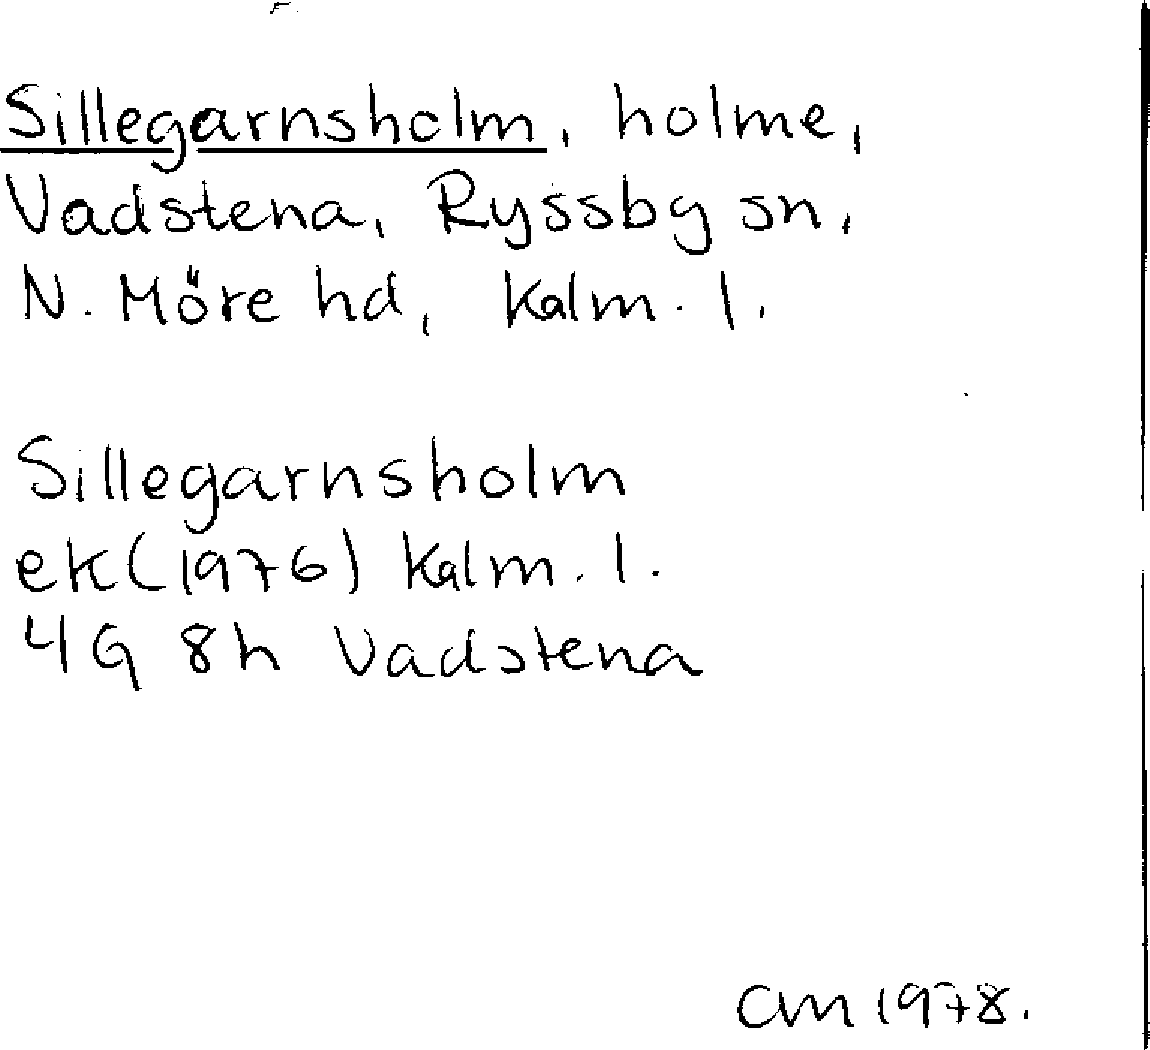 Sillegarnsholm, holme,
Vadstena, Ryssby sn,
N. Möre hd, Kalm. l.
Sillegarnsholm
ek(1976) Kalm. l.
4G 8h Vadstena
CM 1978.